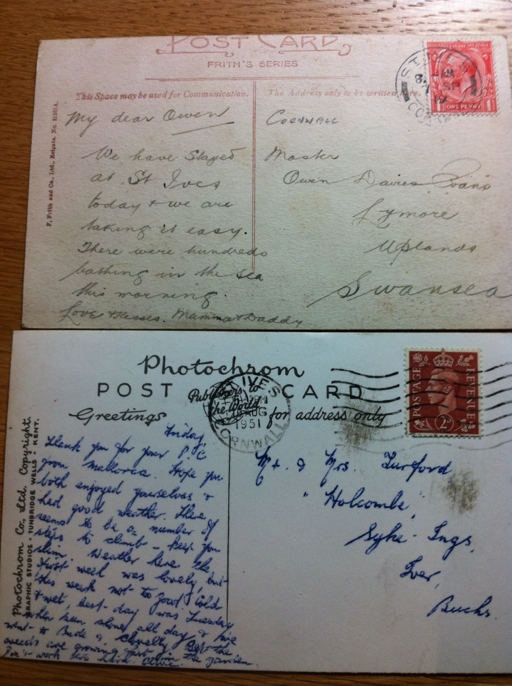 POST CARD
FRITH'S SERIES
This Space may be used for Communication.
The Address only to be written
F. Frith and Co., Ltd., Reigate.
My dear Owen
We have stayed
at St Ives
today & we are
taking it easy.
There were hundreds
bathing in the sea
this morning.
Love & kisses. Mamma & Daddy
CORNWALL
Master
Owen Davies Evans
Lymore
Uplands
Swansea
ONE PENNY
Photochrom
POST CARD
Publishers to
the World
Greetings
for address only
ST IVES
AUG
1951
CORNWALL
POSTAGE
REVENUE
Photochrom Co., Ltd. Copyright.
GRAPHIC STUDIOS · TUNBRIDGE WELLS · KENT.
Friday.
Thank you for your P.C
from Mallorca. Hope you
both enjoyed yourselves &
had good weather. There
seems to be a number of
steps to climb - keep you
slim. Weather here the
first week was lovely but
this week not to good, cold
& wet, best day was Tuesday
when sun shone all day & we
went to Bude & Clovelly
weeds are growing fast in the garden
Mr. & Mrs Turford
"Holcombe",
Syke-Ings,
Iver,
Bucks.